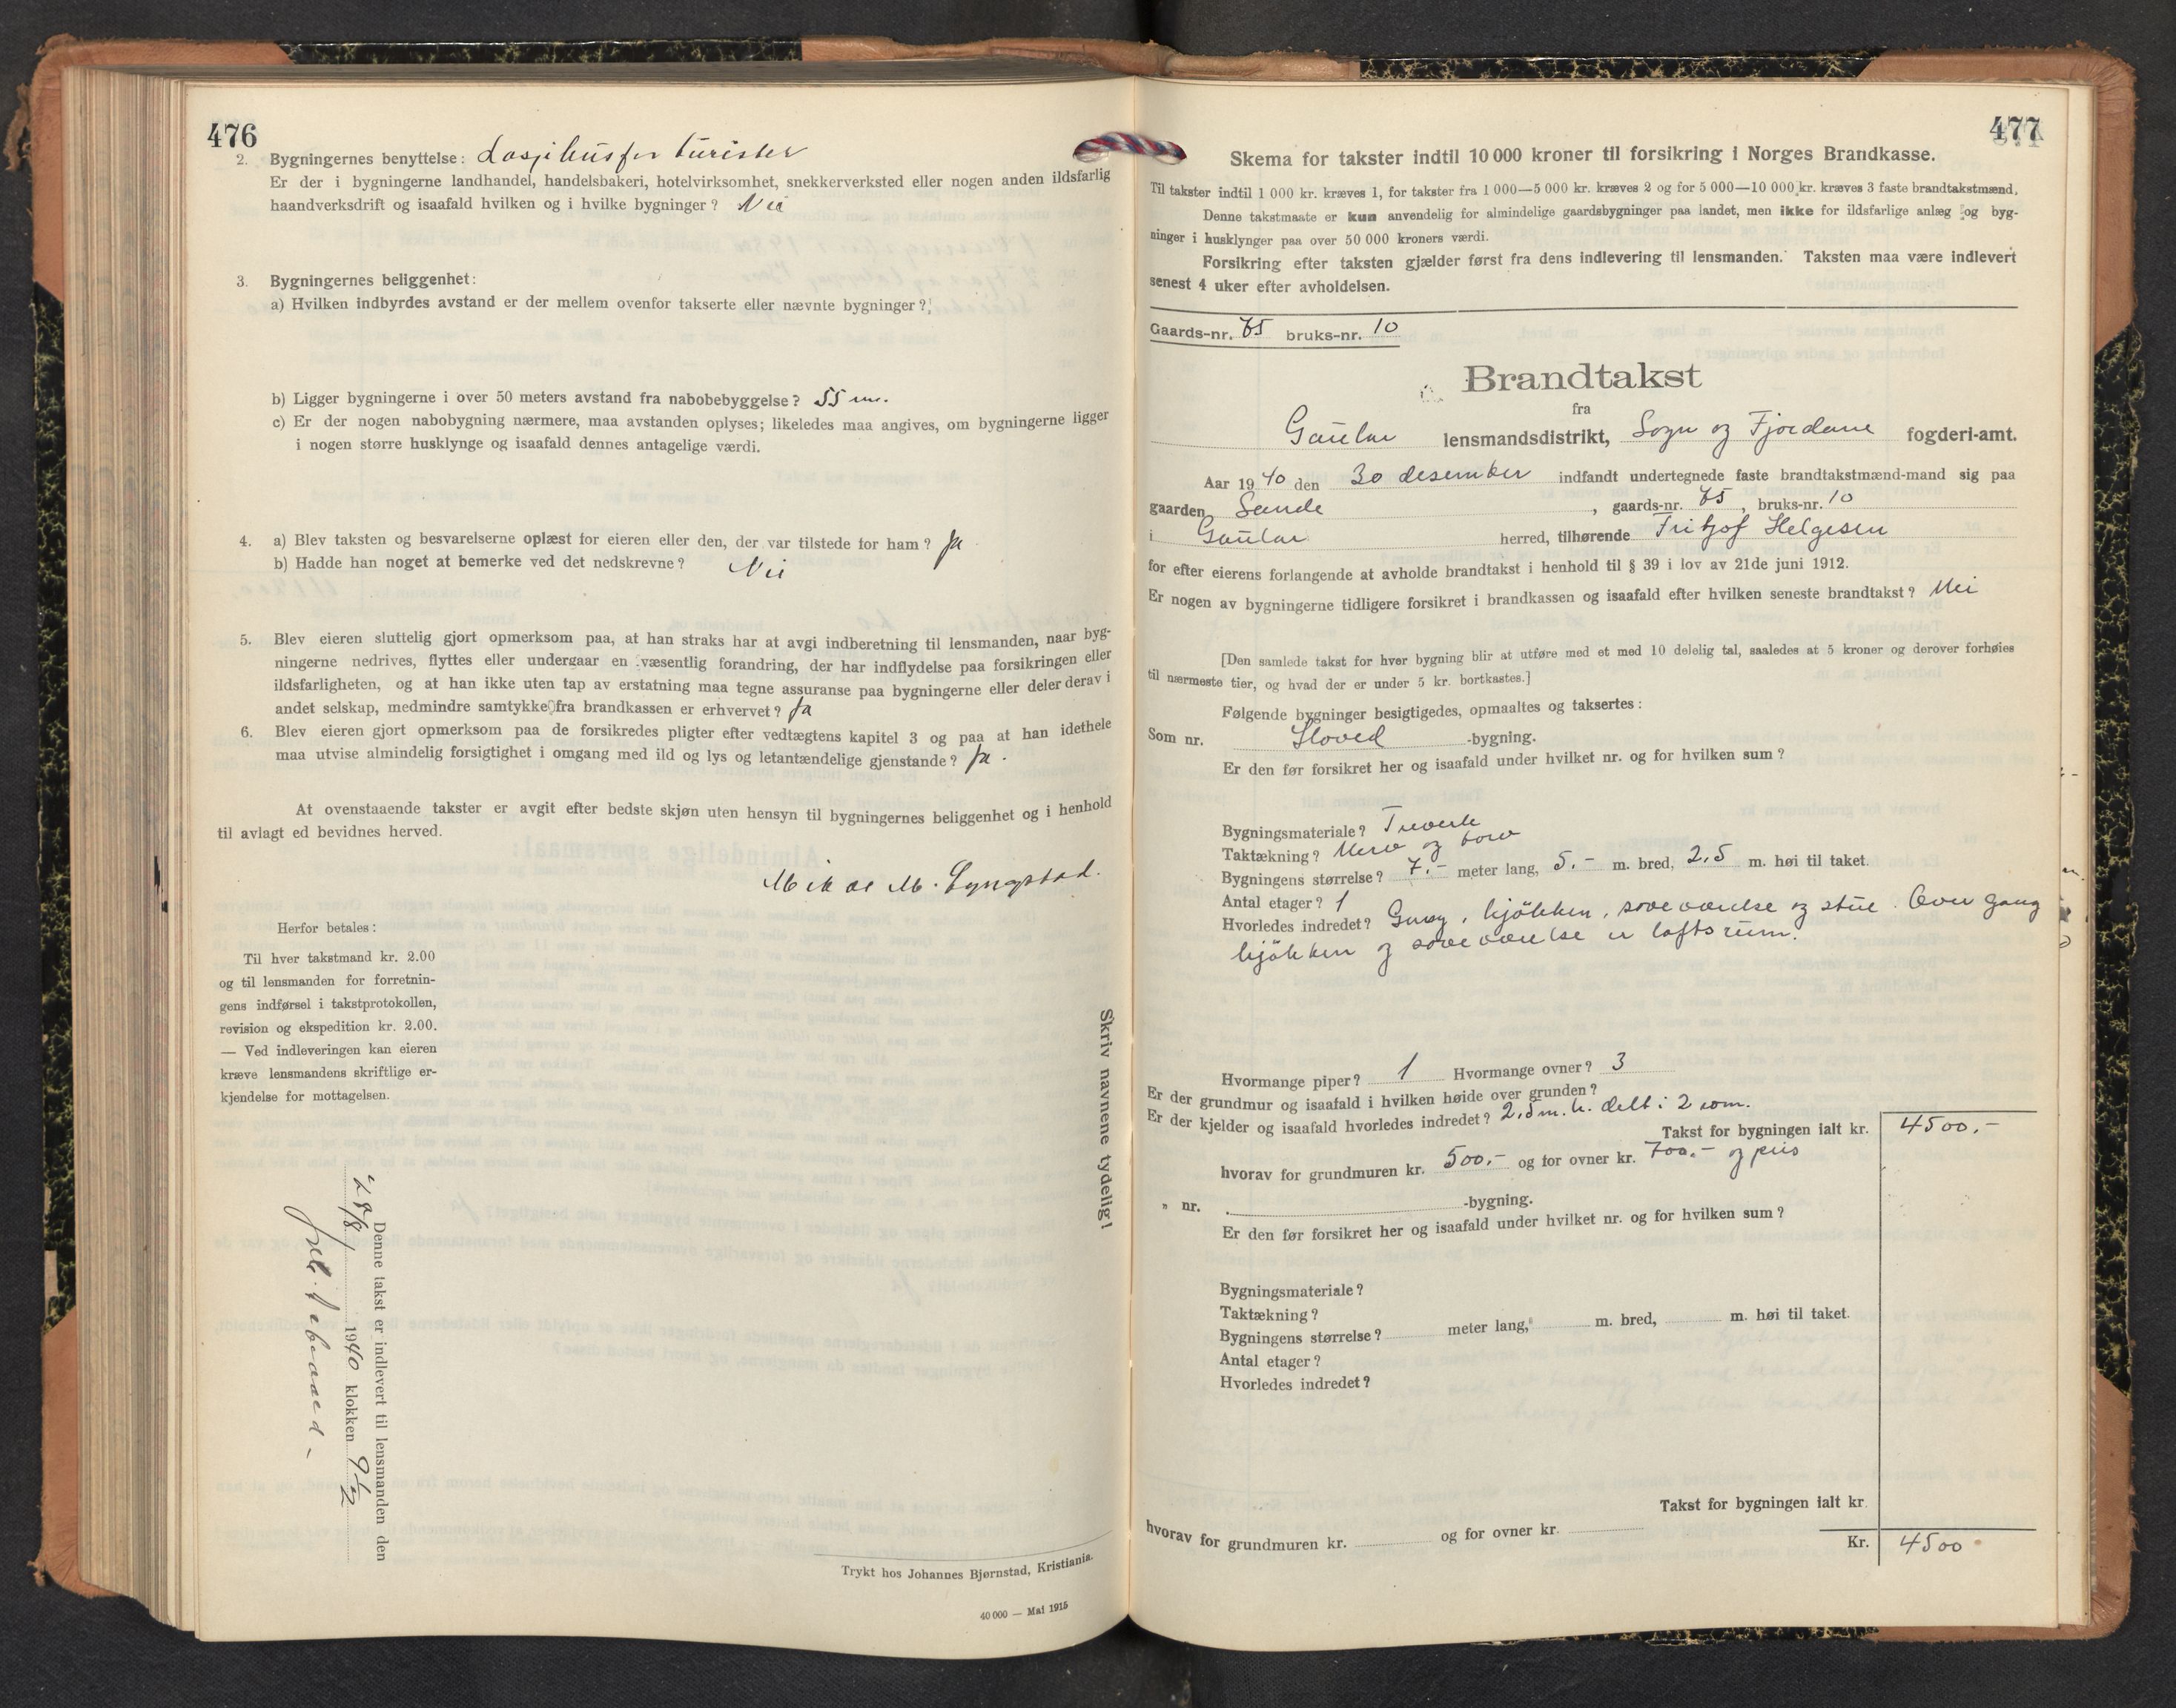 476
2. Bygningernes benyttelse: Losjihus for turister
Er der i bygningerne landhandel, handelsbakeri, hotelvirksomhet, snekkerverksted eller nogen anden ildsfarlig
haandverksdrift og isaafald hvilken og i hvilke bygninger? Nei
3. Bygningernes beliggenhet:
a) Hvilken indbyrdes avstand er der mellem ovenfor takserte eller nævnte bygninger?
b) Ligger bygningerne i over 50 meters avstand fra nabobebyggelse? 55 m.
c) Er der nogen nabobygning nærmere, maa avstanden oplyses; likeledes maa angives, om bygningerne ligger
i nogen større husklynge og isaafald dennes antagelige værdi.
4. a) Blev taksten og besvarelserne oplæst for eieren eller den, der var tilstede for ham? Ja
b) Hadde han noget at bemerke ved det nedskrevne? Nei
5. Blev eieren sluttelig gjort opmerksom paa, at han straks har at avgi indberetning til lensmanden, naar byg-
ningerne nedrives, flyttes eller undergaar en væsentlig forandring, der har indflydelse paa forsikringen eller
ildsfarligheten, og at han ikke uten tap av erstatning maa tegne assuranse paa bygningerne eller deler derav i
andet selskap, medmindre samtykke fra brandkassen er erhvervet? Ja
6. Blev eieren gjort opmerksom paa de forsikredes pligter efter vedtægtens kapitel 3 og paa at han idethele
maa utvise almindelig forsigtighet i omgang med ild og lys og letantændelige gjenstande? Ja.
At ovenstaaende takster er avgit efter bedste skjøn uten hensyn til bygningernes beliggenhet og i henhold
til avlagt ed bevidnes herved.
M. Lyngstad.
Herfor betales:
Til hver takstmand kr. 2.00
og til lensmanden for forretnin-
gens indførsel i takstprotokollen,
revision og ekspedition kr. 2.00.
— Ved indleveringen kan eieren
kræve lensmandens skriftlige er-
kjendelse for mottagelsen.
Skriv navnene tydelig!
Denne takst er indlevert til lensmanden den
28/8 1940 klokken 9½
Trykt hos Johannes Bjørnstad, Kristiania.
40 000 — Mai 1915
477
Skema for takster indtil 10 000 kroner til forsikring i Norges Brandkasse.
Til takster indtil 1 000 kr. kræves 1, for takster fra 1 000—5 000 kr. kræves 2 og for 5 000—10 000 kr. kræves 3 faste brandtakstmænd.
Denne takstmaate er kun anvendelig for almindelige gaardsbygninger paa landet, men ikke for ildsfarlige anlæg og byg-
ninger i husklynger paa over 50 000 kroners værdi.
Forsikring efter taksten gjælder først fra dens indlevering til lensmanden. Taksten maa være indlevert
senest 4 uker efter avholdelsen.
Gaards-nr. 75 bruks-nr. 10
Brandtakst
fra
Gaular lensmandsdistrikt, Sogn og Fjordane fogderi-amt.
Aar 1940 den 30 desember indfandt undertegnede faste brandtakstmænd-mand sig paa
gaarden Sande, gaards-nr. 75, bruks-nr. 10
i Gaular herred, tilhørende Fritjof Helgesen
for efter eierens forlangende at avholde brandtakst i henhold til § 39 i lov av 21de juni 1912.
Er nogen av bygningerne tidligere forsikret i brandkassen og isaafald efter hvilken seneste brandtakst? Nei
[Den samlede takst for hver bygning blir at utføre med et med 10 delelig tal, saaledes at 5 kroner og derover forhøies
til nærmeste tier, og hvad der er under 5 kr. bortkastes.]
Følgende bygninger besigtigedes, opmaaltes og taksertes:
Som nr. Hoved -bygning.
Er den før forsikret her og isaafald under hvilket nr. og for hvilken sum?
Bygningsmateriale? Treverk
Taktækning? Never og torv
Bygningens størrelse? 7.- meter lang, 5.- m. bred, 2,5 m. høi til taket.
Antal etager? 1
Hvorledes indredet? Gang, kjökken, soveværelse og stue. Over gang
kjökken og soveværelse er loftsrum.
Hvormange piper? 1 Hvormange ovner? 3
Er der grundmur og isaafald i hvilken høide over grunden?
Er der kjelder og isaafald hvorledes indredet? 2,5 m. h. delt i 2 rom.
Takst for bygningen ialt kr. 4500.-
hvorav for grundmuren kr. 500.- og for ovner kr. 700.- og peis
" nr. -bygning.
Er den før forsikret her og isaafald under hvilket nr. og for hvilken sum?
Bygningsmateriale?
Taktækning?
Bygningens størrelse? meter lang, m. bred, m. høi til taket.
Antal etager?
Hvorledes indredet?
Takst for bygningen ialt kr.
hvorav for grundmuren kr. og for ovner kr.
Kr. 4500